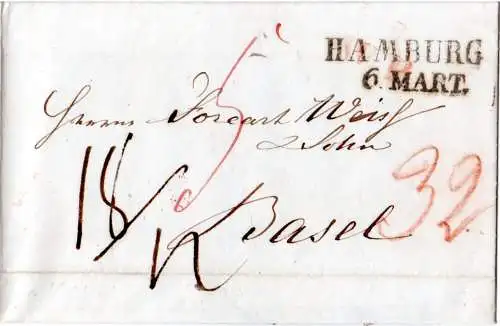 HAMBURG
6. MART.
5
Herrn Forcart Weiss
& Sohn
18
32
Basel